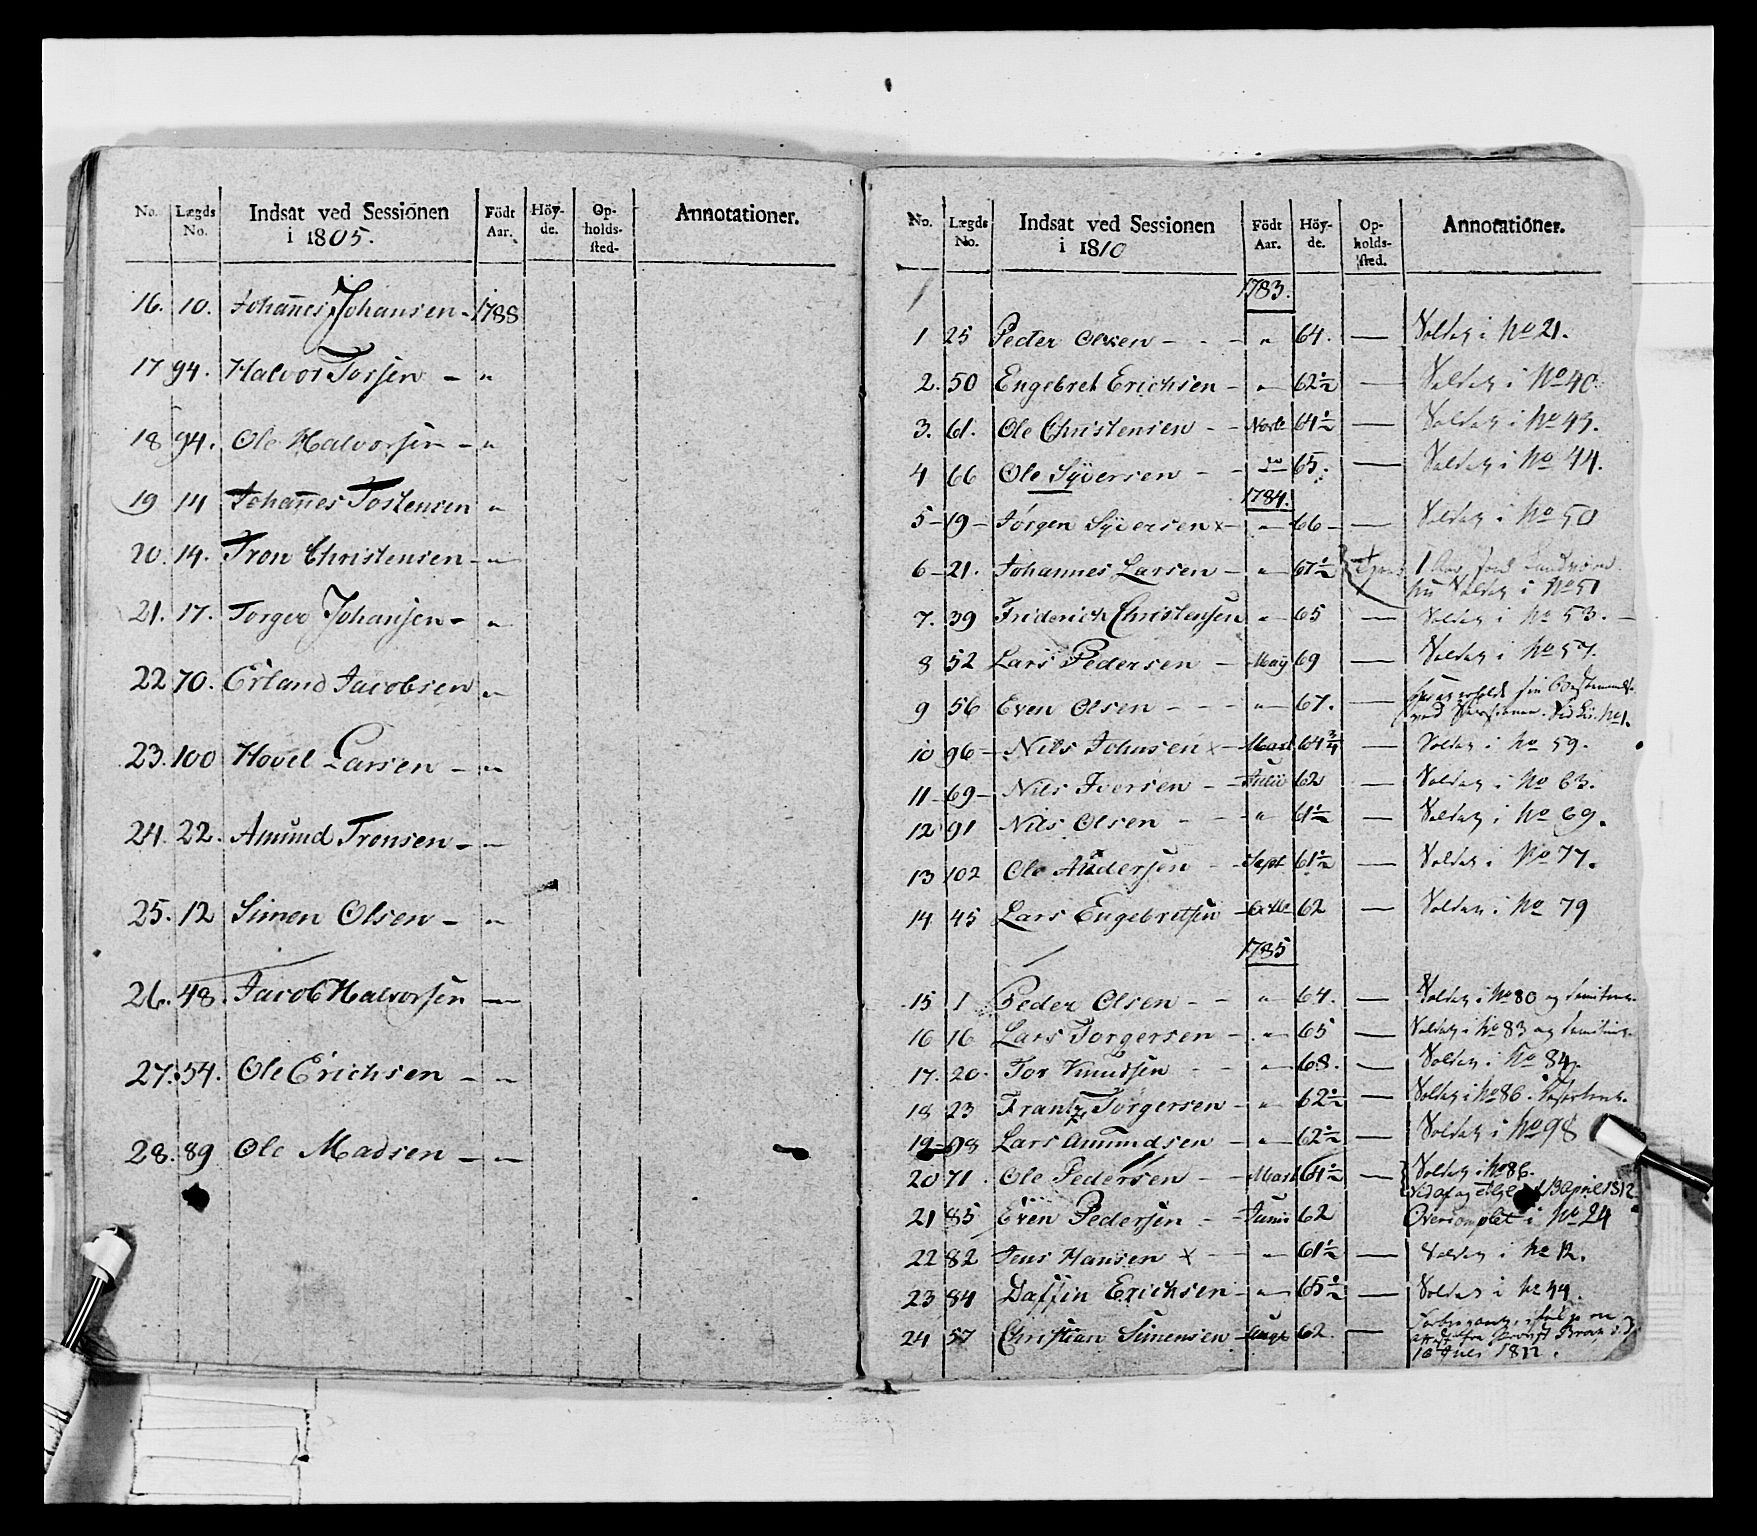 No. Lægds No. Indsat ved Sessionen i 1805. Födt Aar. Höy-de. Op-holds-sted- Annotationer.
16. 10. Johannes Johansen - 1788
17 94. Halvor Torsen - "
18 94. Ole Halvorsen - "
19 14 Johannes Tostensen "
20. 14. Tron Christensen - "
21. 17. Torger Johansen - "
22 70. Erland Jacobsen "
23. 100 Hovel Larsen - "
24. 22. Amund Tronsen - "
25. 12 Simen Olsen - "
26. 48. Jacob Halvorsen "
27. 54. Ole Erichsen - "
28. 89 Ole Madsen - "
No. Lægds No. Indsat ved Sessionen i 1810 Födt Aar. Höy-de. Op-holds-sted. Annotationer.
1783.
1 25 Peder Olsen - - - " 64. — Soldat i No 21.
2. 50 Engebret Erichsen - " 62½ — Soldat i No 40
3. 61. Ole Christensen - - 64½ — Soldat i No 43.
4 66 Ole Syversen - - do 65. — Soldat i No 44.
1784.
5 - 19 - Jörgen Syversen x - " 66 - — Soldat i No 50
6 - 21. Johannes Larsen - " 67½ 1 Aar
nu Soldat i No 51
7. 39 Friderich Christensen " 65 — Soldat i No 53. -
8 52 Lars Pedersen - May 69 — Soldat i No 57.
9 56 Even Olsen - - - " 67. —
No 1.
10 96 - Nils Johnsen x - Mart 64¾ — Soldat i No 59.
11 - 69 - Nils Iversen - - Julii 62 — Soldat i No 63.
12 91 Nils Olsen - - " 61½ — Soldat i No 69.
13 102 Ole Andersen - - Sept 61½ — Soldat i No 77.
14 45 Lars Engebretsen - 62 — Soldat i No 79
1785
15 1 Peder Olsen - - " 64. — Soldat i No 80 og
16 16 Lars Torgersen - " 65 — Soldat i No 83 og
17. 20. Tor Knudsen - - " 68. — Soldat i No 84.
18 23 Frantz Torgersen - " 62½ — Soldat i No 86.
19 - 98 Lars Amundsen - " 62½ — Soldat i No 98
20 71. Ole Pedersen - - Mart 61½ — Soldat i No 86.
13 April 1812
21 85 Even Pedersen - Junii 62 Overcomplet i No 24
22 82 Jens Hansen x - - " 61½ — Soldat i No 12.
23 84 Daffin Erichsen - " 65½ — Soldat i No 44.
24 57 Christian Simensen - Augt 62. —
1812.